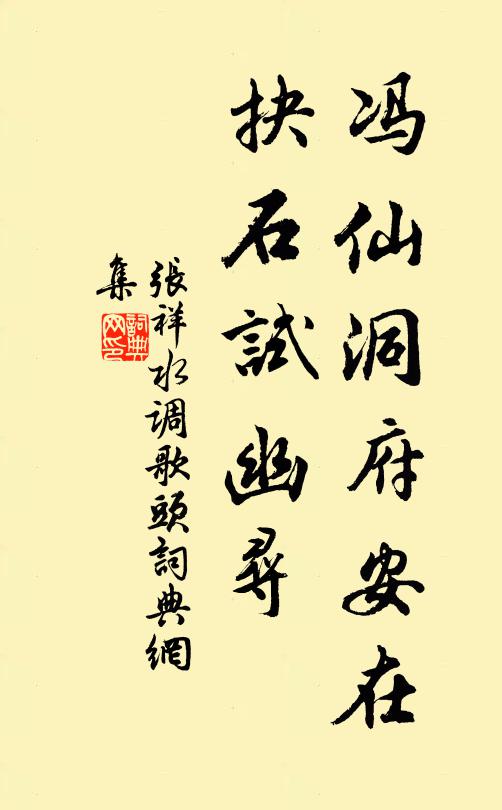 冯仙洞府安在
抉石試幽尋
張祥水调歌頭詞典網
集
詞典
网印